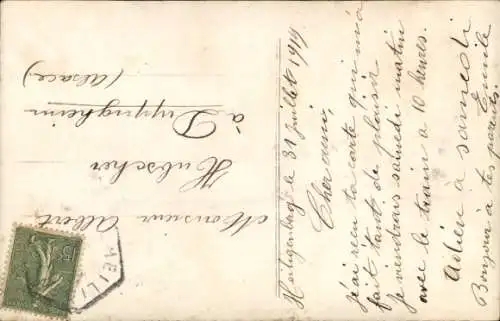 Heiligenberg le 31 Juillet 1919
Cher ami,
J'ai reçu ta carte qui m'a
fait tant de plaisir
je viendrais samedi matin
avec le train a 10 heures.
Adieu à samedi
Emile
Bonjour à tes parents.
Monsieur Albert
Hubscher
à Duppigheim
(Alsace)